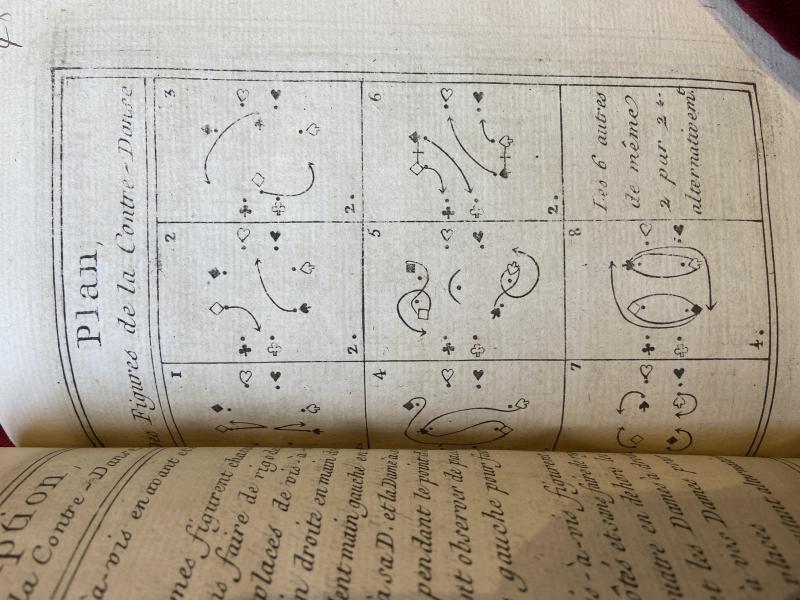 Plan,
Figures de la Contre-Danse
1
2
3
2.
2.
4
5
6
2.
7
8
4.
Les 6 autres
de même
2 par 2 &
alternativem.t
la Contre-Danse
à-vis en avant et
mes figurent
faire de rig
places de vis-à-
droite en main
main gauche en
à sa D. et la Dame
pendant le
observer de
gauche pour
-à-vis figurent
et les Dames
à vis